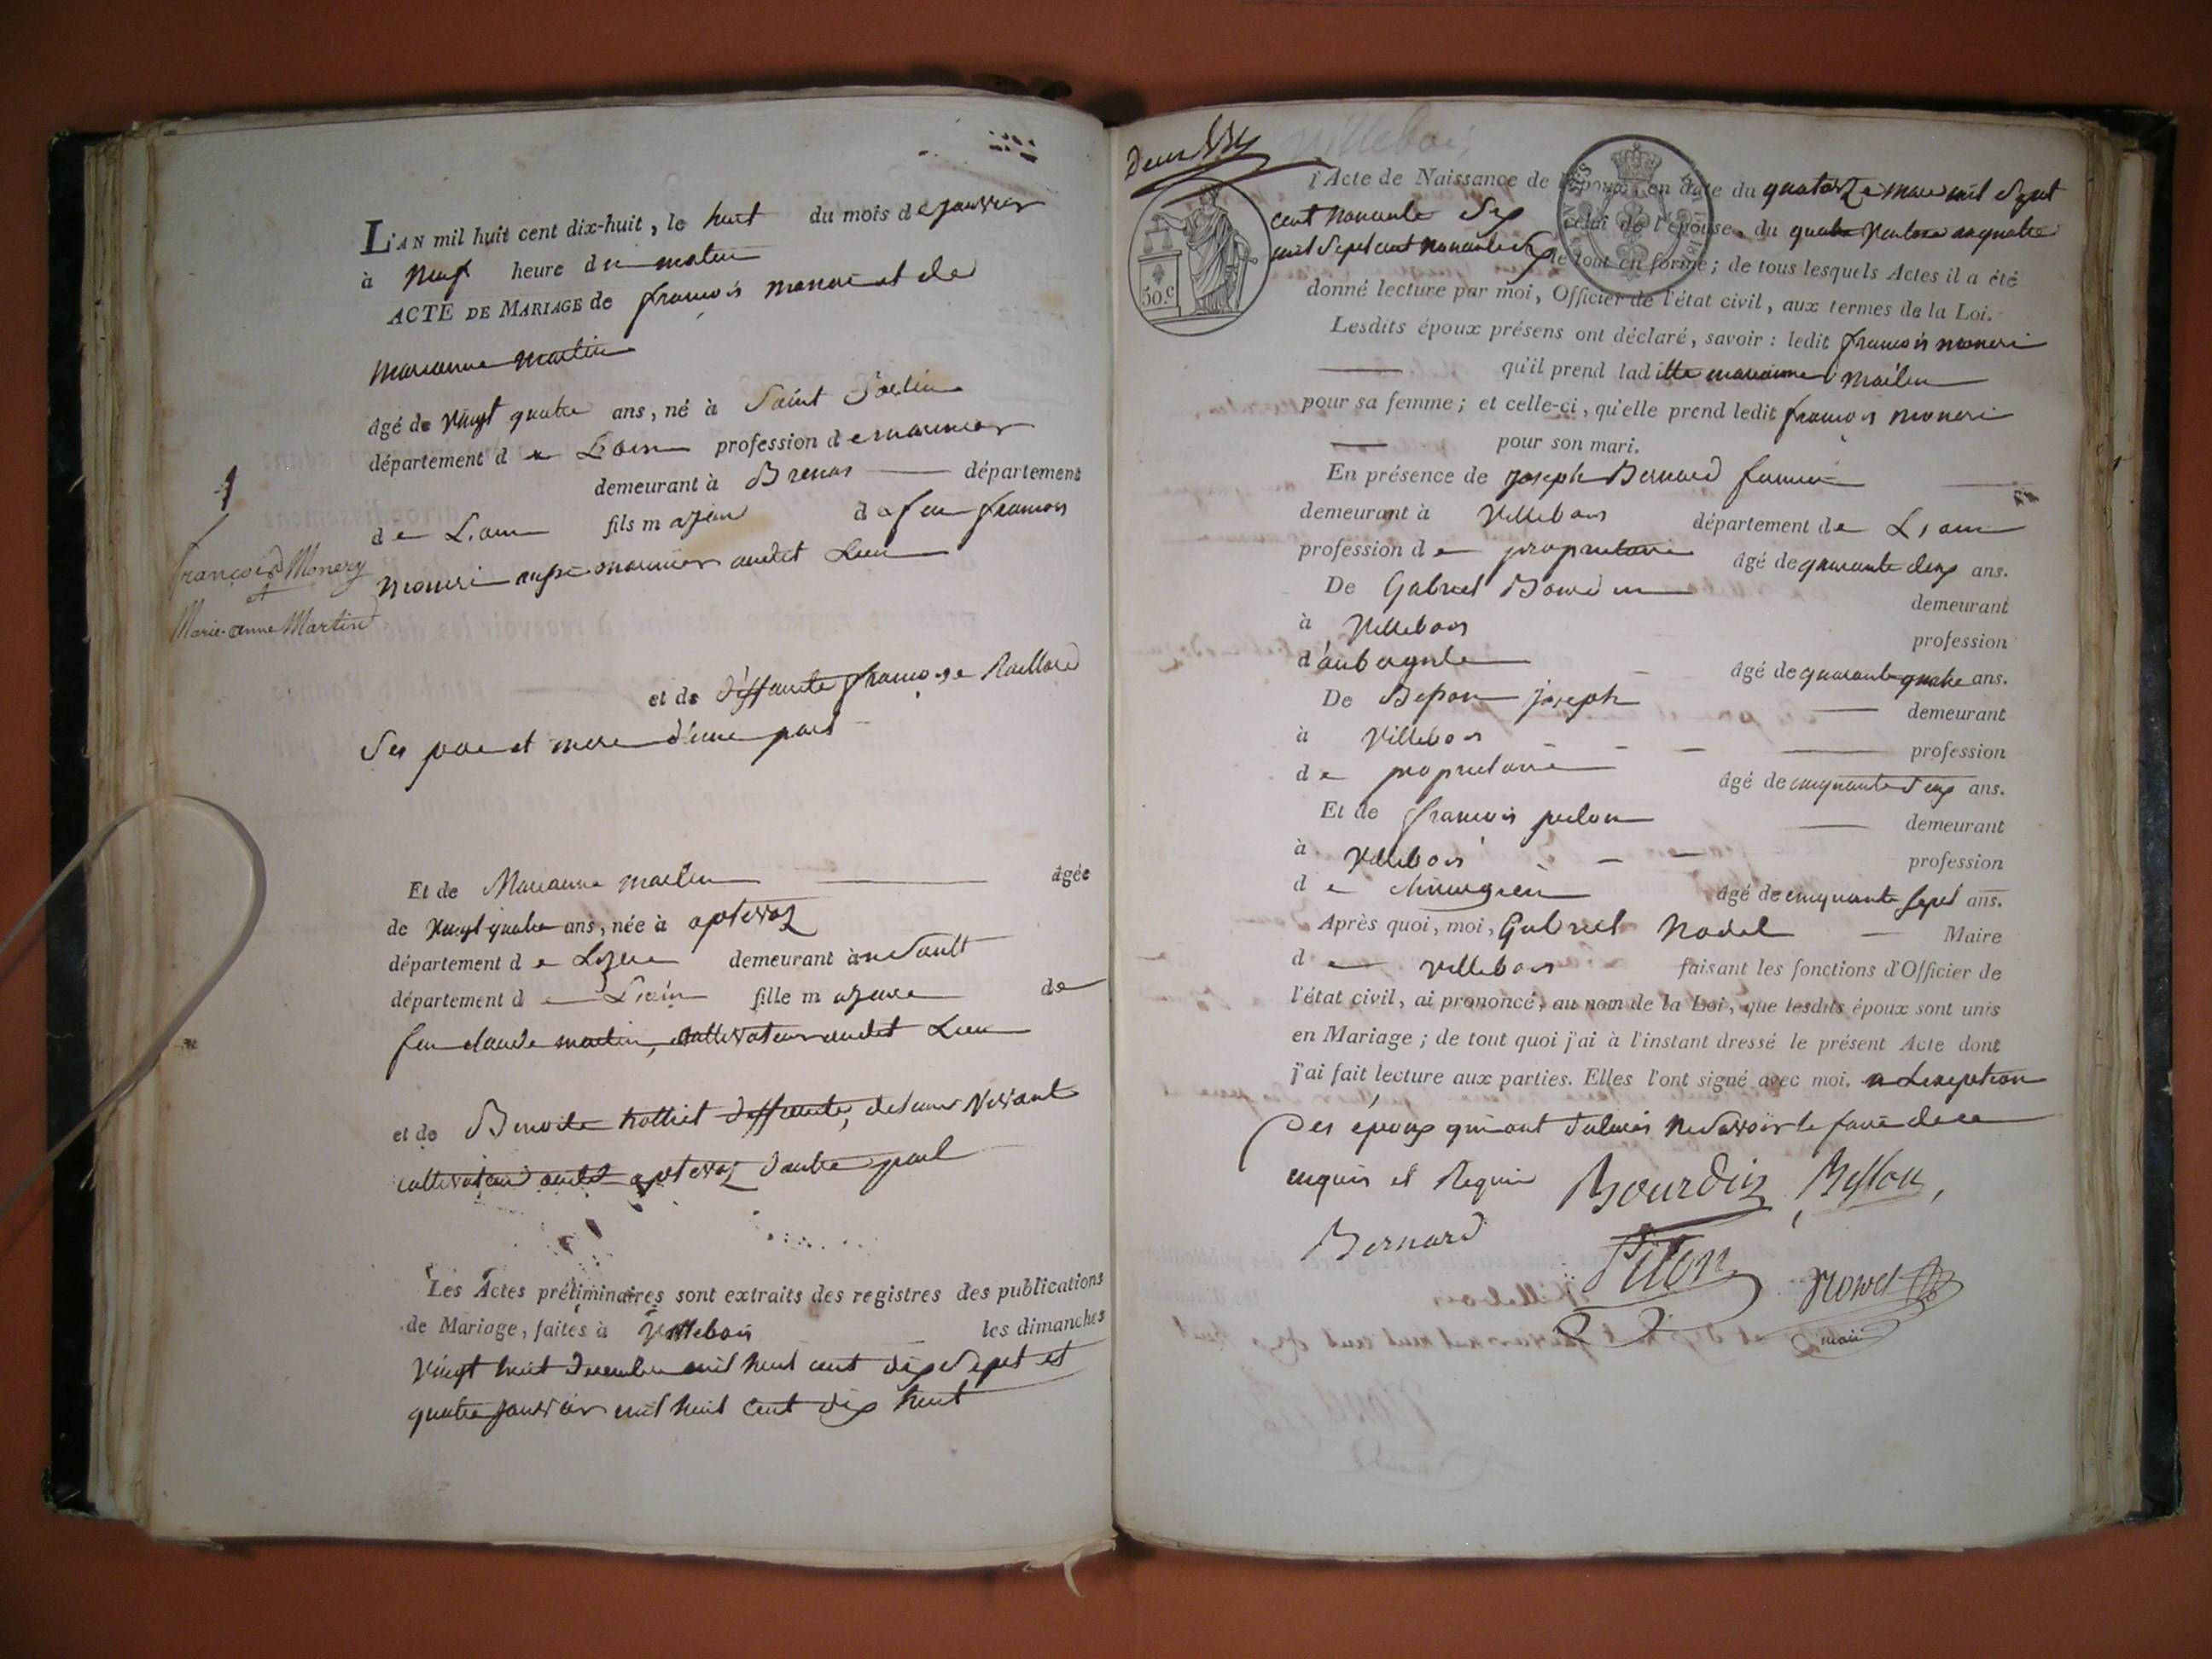 L'AN mil huit cent dix-huit, le huit du mois de janvier
à neuf heure du matin
ACTE DE MARIAGE de françois moneri et de
marianne martin
âgé de vingt quatre ans, né à Saint
département de L'ain profession de marinier
demeurant à département
de L'ain fils majeur de feu françois
moneri marinier audit Lieu
1
françois Monery
et
Marie-anne Martin
et de deffunte françoise
Ses pere et mere d'une part
Et de Marianne martin âgée
de vingt quatre ans, née à optevoz
département de Lizere demeurant à Sault
département de L'ain fille majeure de
feu claude martin, cultivateur audit Lieu
et de Benoite deffunte, de leur vivant
cultivateurs audit optevoz d'autre part
Les Actes préliminaires sont extraits des registres des publications
de Mariage, faites à villebois les dimanches
vingt huit decembre mil huit cent dix Sept et
quatre janvier mil huit cent dix huit
villebois
l'Acte de Naissance de l'époux, en date du quatorze mars mil Sept
cent nonante celui de l'épouse, du quatre ventose an quatre
mil Sept cent nonante le tout en forme; de tous lesquels Actes il a été
50.c
donné lecture par moi, Officier de l'état civil, aux termes de la Loi.
Lesdits époux présens ont déclaré, savoir : ledit françois moneri
qu'il prend laditte marianne martin
pour sa femme; et celle-ci, qu'elle prend ledit françois moneri
pour son mari.
En présence de joseph Bernard
demeurant à Villebois département de L'ain
profession de proprietaire âgé de quarante deux ans.
De Gabriel Bourdin demeurant
à Villebois profession
d'aubergiste âgé de quarante quatre ans.
De Besson joseph demeurant
à Villebois profession
de proprietaire âgé de cinquante deux ans.
Et de françois pelon demeurant
à Villebois profession
de chirurgien âgé de cinquante sept ans.
Après quoi, moi, Gabriel Maire
de villebois faisant les fonctions d'Officier de
l'état civil, ai prononcé, au nom de la Loi, que lesdits époux sont unis
en Mariage; de tout quoi j'ai à l'instant dressé le présent Acte dont
j'ai fait lecture aux parties. Elles l'ont signé avec moi. a Lexeption
des époux qui ont declaré ne Savoir le faire de ce
enquis et Requis Bourdin Besson
Bernard
maire